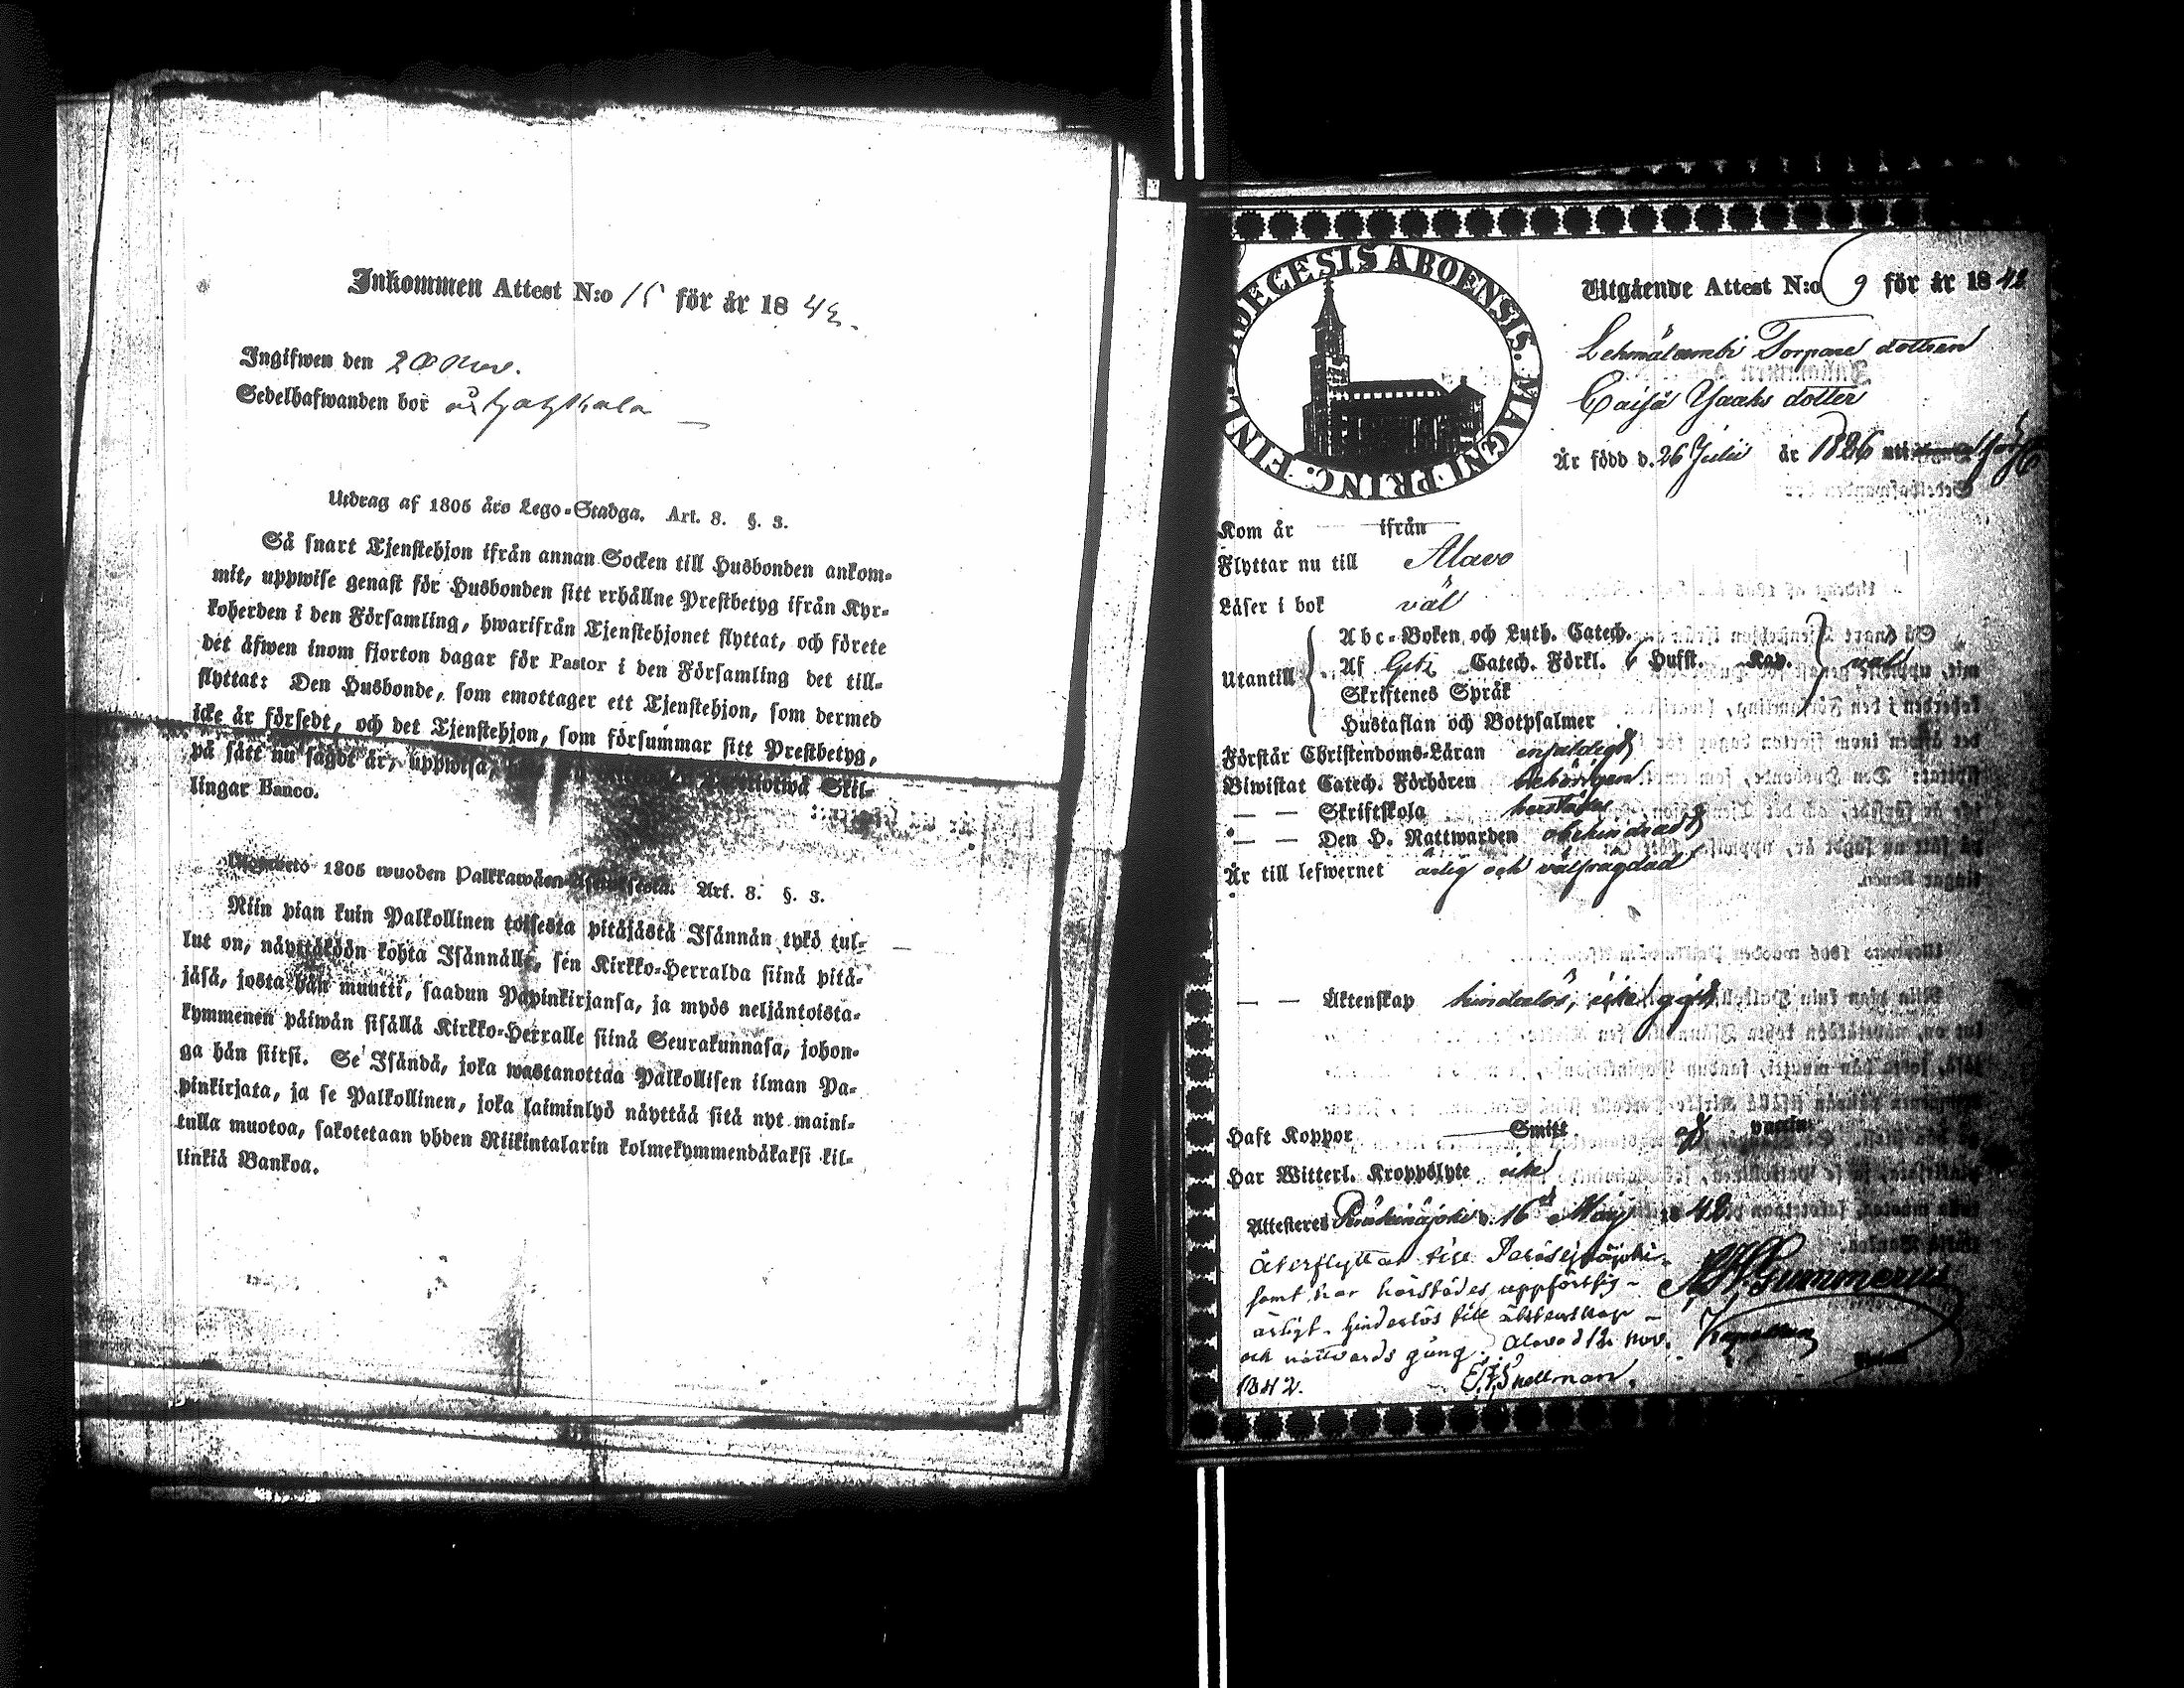 Inkommen Attest N:o 15 för år 1842.
Ingifwen den 20 Nov.
Sedelhafwanden bor å
Utdrag af 1805 års Lego-Stadga. Art. 8. §. 3.
Så snart Tjenstehjon ifrån annan Socken till Husbonden ankom-
mit, uppwise genast för Husbonden sitt erhållne Prestbetyg ifrån Kyr-
koherden i den Församling, hwarifrån Tjenstehjonet flyttat, och förete
det äfwen inom fjorton dagar för Pastor i den Församling det till-
flyttat: Den Husbonde, som emottager ett Tjenstehjon, som dermed
icke är försedt, och det Tjenstehjon, som försummar sitt Prestbetyg,
på sätt nu sagdt är, uppwisa, Skil-
lingar Banco.
1805 wuoden Palkkawäen Art. 8. §. 3.
Niin pian kuin Palkollinen toisesta pitäjästä Isännän tykö tul-
lut on, näyttäköön kohta Isännälle, sen Kirkko-Herralda siinä pitä-
jäsä, josta hän muutti, saadun Papinkirjansa, ja myös neljäntoista-
kymmenen päiwän sisällä Kirkko-Herralle siinä Seurakunnasa, johon-
ga hän siirsi. Se Isändä, joka wastanottaa Palkollisen ilman Pa-
pinkirjata, ja se Palkollinen, joka laiminlyö näyttää sitä nyt maini-
tulla muotoa, sakotetaan yhden Riikintalarin kolmekymmendäkaksi kil-
linkiä Bankoa.
DIECESIS ABOENSIS. MAGNI PRINC. FINL.
Utgående Attest N:o 9 för år 1842
Torpare dottren
Caisa Jaaks dotter
Är född d. 26 Julii år 1826 uti
Kom år ifrån
Flyttar nu till Alavo
Läser i bok väl
Utantill
Abc-Boken och Luth. Catech.
Af Catech. Förkl. Husst. Kap. väl
Skriftenes Språk
Hustaflan och Botpsalmer
Förstår Christendoms-Läran enfaldigt
Biwistat Catech. Förhören behörigen
— — Skriftskola härstädes
— — Den H. Nattwarden obehindradt
Är till lefwernet ärlig och välfrägdad
— — Äktenskap hinderlös, icke gift
Haft Koppor Smitt. vaccin
Har Witterl. Kroppslyte icke
Attesteras Peräseinäjoki d. 16 Maij 1842
Återflyttar till Peräseinäjoki
samt har härstädes uppfört sig
ärligt. hinderlös till äktenskap
och nattvards gång. Alavo d 12 Nov.
1842. Snellman.
Gummerus
Kapellan